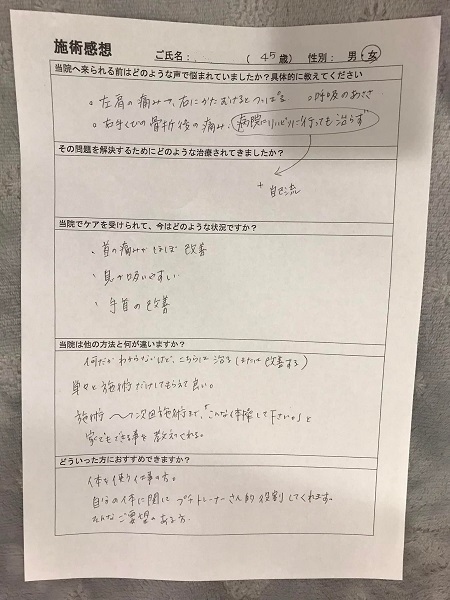 施術感想
ご氏名: (45歳) 性別: 男・女
当院へ来られる前はどのような声で悩まれていましたか?具体的に教えてください
。左肩の痛みで、右にかたむけるとつっぱる 。呼吸のあささ
。右手くびの骨折後の痛み、病院にリハビリに行っても治らず
その問題を解決するためにどのような治療されてきましたか?
+ 自己流
当院でケアを受けられて、今はどのような状況ですか?
・首の痛みがほぼ改善
・息が吸いやすい
・手首の改善
当院は他の方法と何が違いますか?
何だかわからないけど、こちらは治る(または改善する)
単々と施術だけしてもらえて良い。
施術〜次回施術まで、「こんな体操して下さい。」と
家でもできる事を教えてくれる。
どういった方におすすめできますか?
体を使う仕事の方。
自分の体に関してプチトレーナーさん的役割してくれます。
そんなご要望のある方.